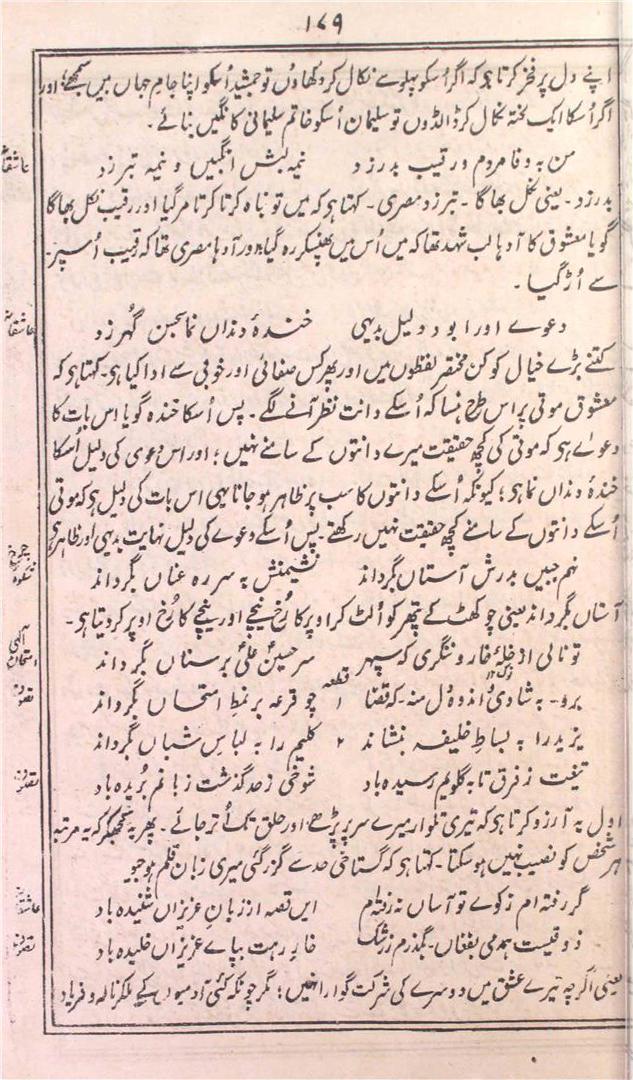 ۱۷۹
اپنے دل پر فخر کرتا ہو کہ اگر اُسکو پہلو سے نکال کر دکھاوں تو جمشید اُسکو اپنا جامِ جہاں بیں سمجھے؛ اور
اگر اُسکا ایک لختہ نکال کر ڈالدوں تو سلیمان اُسکو خاتم سلیمانی کا نگیں بنائے۔
عاشقانہ
من بہ وفا مردم و رقیب بدر زد نیمہ لبش انگبیں و نیمہ تبر زد
بدر زد۔ یعنی نکل بھاگا۔ تبر زد مصری۔ کہتا ہو کہ میں تو نباہ کرتا کرتا مر گیا اور رقیب نکل بھاگا
گویا معشوق کا آدہا لب شہد تھا کہ میں اُس میں پھنسکر رہ گیا؛ اور آدہا مصری تھا کہ رقیب اُسپر
سے اُڑ گیا۔
عاشقانہ
دعوے اورا بود دلیل بدیہی خندۂ دنداں نما بحسن گہر زد
کتنے بڑے خیال کو کن مختصر لفظوں میں اور پھر کس صفائی اور خوبی سے ادا کیا ہو۔ کہتا ہو کہ
معشوق موتی پر اس طرح ہنسا کہ اُسکے دانت نظر آنے لگے۔ پس اُسکا خندہ گویا اس بات کا
دعوےٰ ہو کہ موتی کی کچھ حقیقت میرے دانتوں کے سامنے نہیں؛ اور اس دعوی کی دلیل اُسکا
خندۂ دنداں نما ہو؛ کیونکہ اُسکے دانتوں کا سب پر ظاہر ہو جانا یہی اس بات کی دلیل ہو کہ موتی
اُسکے دانتوں کے سامنے کچھ حقیقت نہیں رکھتے۔ پس اُسکے دعوے کی دلیل نہایت بدیہی اور ظاہر ہو
شکوہ
نہم جبیں بدرش آستاں بگرداند نشیمنش بہ سر رہ عناں بگرداند
آستاں بگرداند یعنی چوکھٹ کے پتھر کو اُلٹ کر اوپر کا رُخ نیچے اور نیچے کا رُخ اوپر کر دیتا ہو۔
تو نالی از خلۂ خار و ننگری کہ سپہر سر حسینِ علیؑ بر سناں بگرداند
قطعہ
برو۔ بہ شادی و اندوہ دل منہ۔ کہ قضا ۱ چو قرعہ بر نمطِ امتحاں بگرداند
یزید را بہ بساطِ خلیفہ بنشاند ۲ کلیم را بہ لباسِ شباں بگرداند
تیغت ز فرق تا بہ گلویم رسیدہ باد شوخی ز حد گذشت زبانم بُریدہ باد
اول یہ آرزو کرتا ہو کہ تیری تلوار میرے سر پر پڑے اور حلق تک اُتر جائے۔ پھر یہ سمجھکر کہ یہ مرتبہ
ہر شخص کو نصیب نہیں ہو سکتا۔ کہتا ہو کہ گستاخی حد سے گزر گئی میری زبان قلم ہو جیو
عاشقانہ
گر رفتہ ام ز کوے تو آساں نہ رفتہ ام ایں قصہ از زبانِ عزیزاں شنیدہ باد
ذوقیست ہمدمی بفغاں۔ بگذرم ز رشک خارِ رہت بپاے عزیزاں خلیدہ باد
یعنی اگرچہ تیرے عشق میں دوسرے کی شرکت گوارا نہیں؛ مگر چونکہ کئی آدمیوں کے ملکر نالہ و فریاد